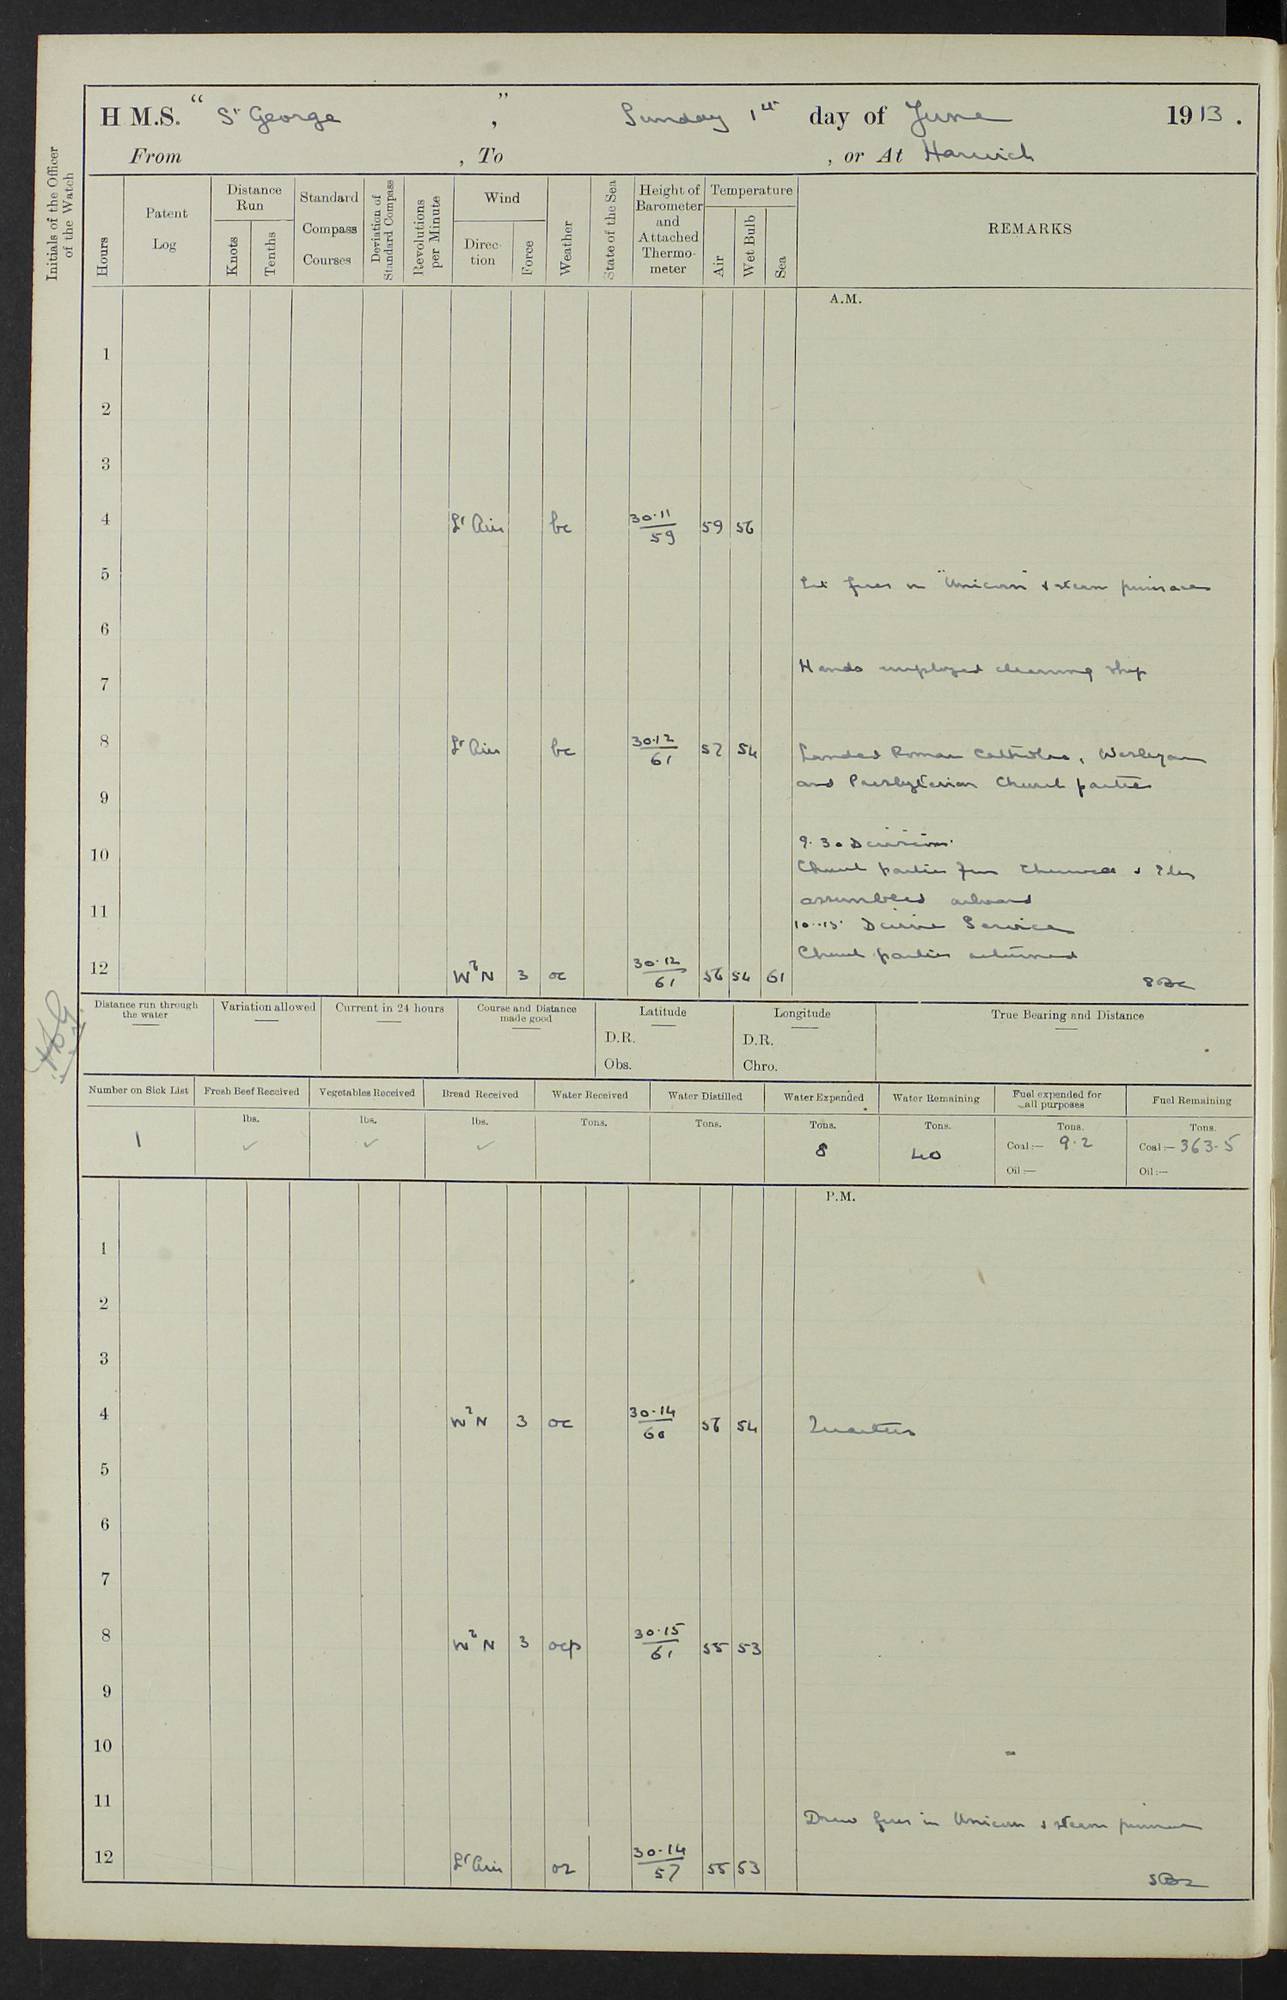 H M.S. " St George ", Sunday 1st day of June 1913.
From , To , or At Harwich
Initials of the Officer of the Watch
Hours
Patent Log
Distance Run
Knots
Tenths
Standard Compass Courses
Deviation of Standard Compass
Revolutions per Minute
Wind
Direction
Force
Weather
State of the Sea
Height of Barometer and Attached Thermometer
Temperature
Air
Wet Bulb
Sea
REMARKS
A.M.
1
2
3
4 Lt Airs bc 30.11/59 59 56
5 Lit fires in "Unicorn" & steam pinnaces
6
Hands employed cleaning ship
7
8 Lt Airs bc 30.12/61 57 54 Landed Roman Catholics, Wesleyan
and Presbyterian Church parties
9
9.30 Divisions.
10 Church parties from
assembled onboard
11 10.15 Divine Service
Church parties returned
12 WbN 3 oc 30.12/61 56 54 61
Distance run through the water
Variation allowed
Current in 24 hours
Course and Distance made good
Latitude
D.R.
Obs.
Longitude
D.R.
Chro.
True Bearing and Distance
Number on Sick List
1
Fresh Beef Received
lbs.
✓
Vegetables Received
lbs.
✓
Bread Received
lbs.
✓
Water Received
Tons.
Water Distilled
Tons.
Water Expended
Tons.
8
Water Remaining
Tons.
40
Fuel expended for all purposes
Tons.
Coal:— 9.2
Oil:—
Fuel Remaining
Tons.
Coal:— 363.5
Oil:—
P.M.
1
2
3
4 WbN 3 oc 30.14/60 56 54 Quarters
5
6
7
8 WbN 3 ocp 30.15/61 55 53
9
10
11
Drew fires in Unicorn & steam pinnace
12 Lt Airs 30.14/57 55 53